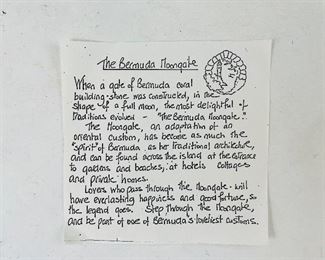 The Bermuda Moongate
When a gate of Bermuda coral
building-stone was constructed, in the
shape of a full moon, the most delightful of
Traditions evolved - "The Bermuda Moongate."
The Moongate, an adaptation of an
oriental custom, has become as much the
"spirit" of Bermuda as her Traditional architecture,
and can be found across the island at the entrance
to gardens and beaches, at hotels cottages
and private homes.
Lovers who pass through the Moongate will
have everlasting happiness and good fortune, so
the legend goes. Step through the Moongate,
and be part of one of Bermuda's loveliest customs.